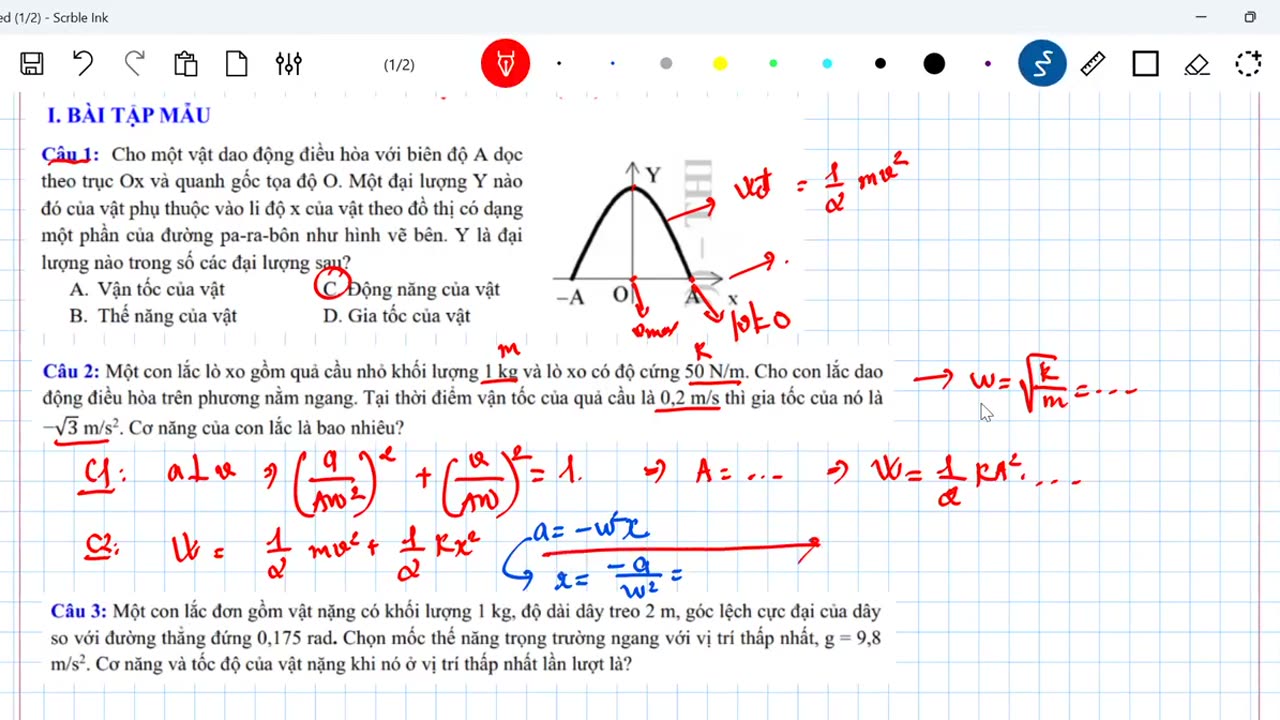 ed (1/2) - Scrble Ink
(1/2)
I. BÀI TẬP MẪU
Câu 1: Cho một vật dao động điều hòa với biên độ A dọc
theo trục Ox và quanh gốc tọa độ O. Một đại lượng Y nào
đó của vật phụ thuộc vào li độ x của vật theo đồ thị có dạng
một phần của đường pa-ra-bôn như hình vẽ bên. Y là đại
lượng nào trong số các đại lượng sau?
A. Vận tốc của vật C. Động năng của vật
B. Thế năng của vật D. Gia tốc của vật
Y
–A O A x
Wđ = 1/2 mv²
m k
Câu 2: Một con lắc lò xo gồm quả cầu nhỏ khối lượng 1 kg và lò xo có độ cứng 50 N/m. Cho con lắc dao
động điều hòa trên phương nằm ngang. Tại thời điểm vận tốc của quả cầu là 0,2 m/s thì gia tốc của nó là
−√3 m/s². Cơ năng của con lắc là bao nhiêu?
→ w = √(k/m) = ...
C1: a⊥v ⇒ (a/Aw²)² + (v/Aw)² = 1. ⇒ A = ... ⇒ W = 1/2 kA² ...
C2: W = 1/2 mv² + 1/2 kx²
a = -w²x
x = -a/w² =
Câu 3: Một con lắc đơn gồm vật nặng có khối lượng 1 kg, độ dài dây treo 2 m, góc lệch cực đại của dây
so với đường thẳng đứng 0,175 rad. Chọn mốc thế năng trọng trường ngang với vị trí thấp nhất, g = 9,8
m/s². Cơ năng và tốc độ của vật nặng khi nó ở vị trí thấp nhất lần lượt là?